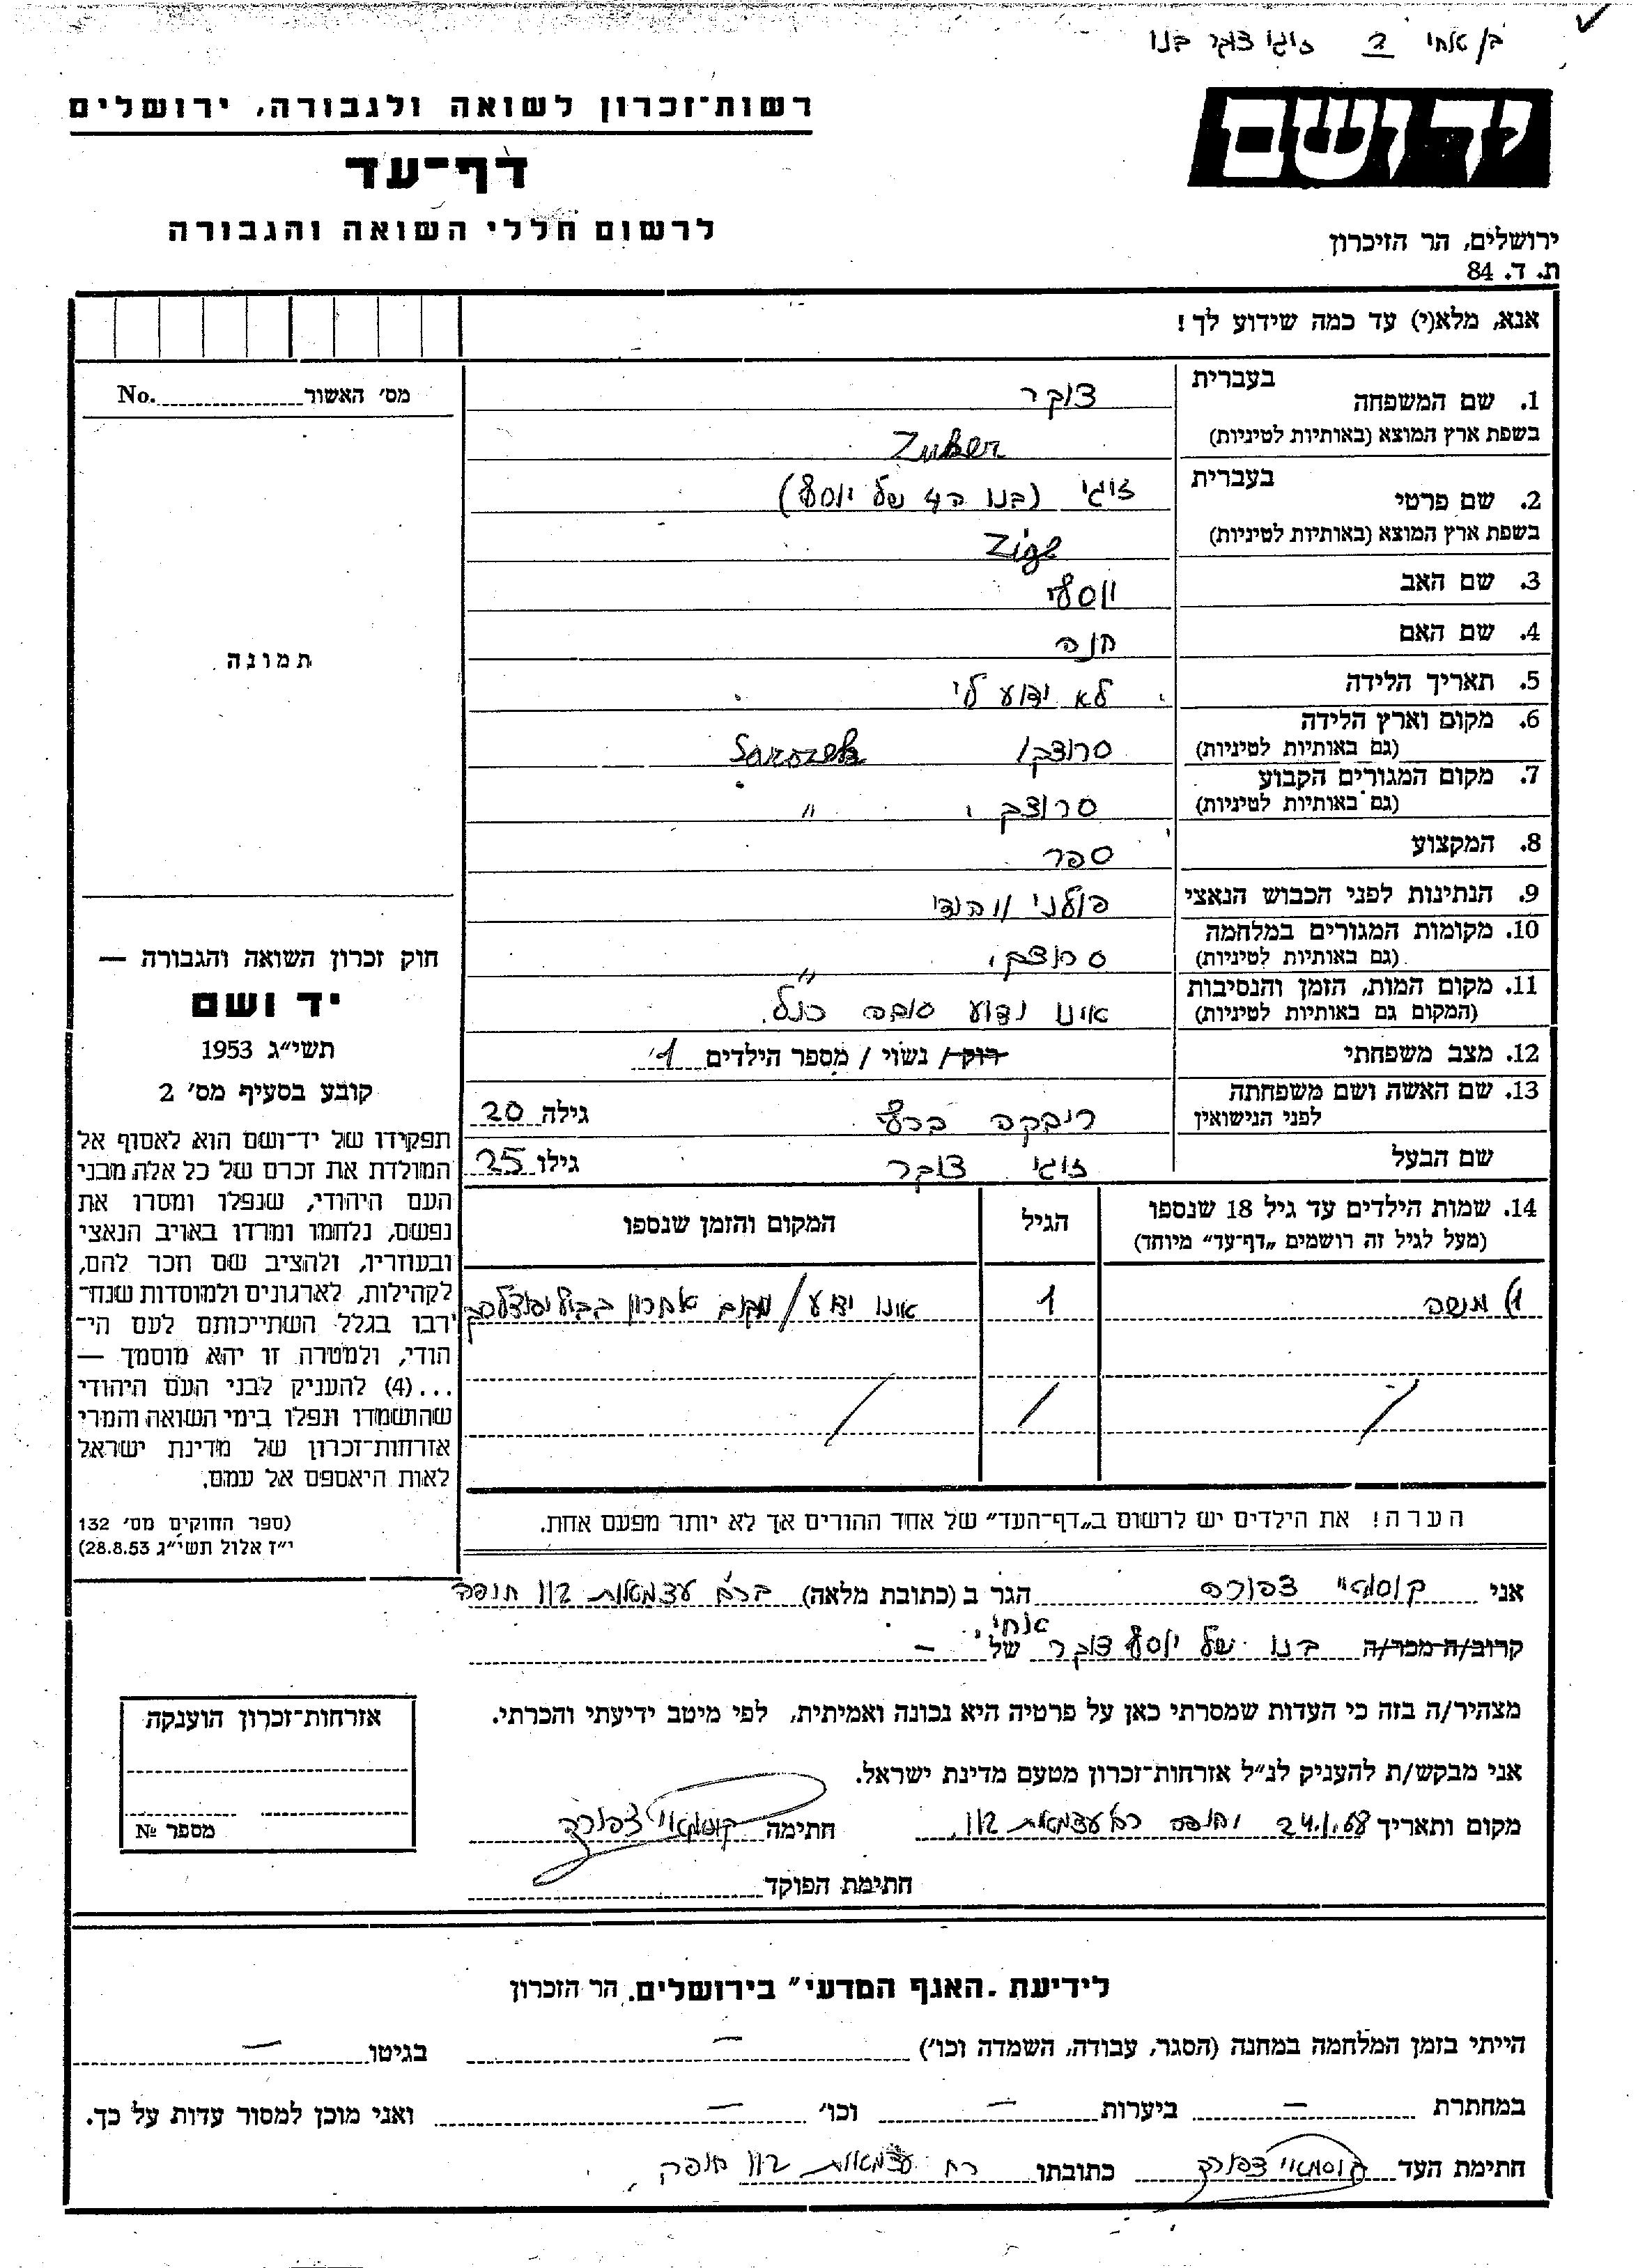 בן אחי ד זיגי צוקר בנו
יד ושם
רשות־זכרון לשואה ולגבורה, ירושלים
דף־עד
לרשום חללי השואה והגבורה
ירושלים, הר הזיכרון
ת. ד. 84
אנא, מלא(י) עד כמה שידוע לך!
מס׳ האשור No.
תמונה
חוק זכרון השואה והגבורה —
יד ושם
תשי״ג 1953
קובע בסעיף מס׳ 2
תפקידו של יד־ושם הוא לאסוף אל
המולדת את זכרם של כל אלה מבני
העם היהודי, שנפלו ומסרו את
נפשם, נלחמו ומרדו באויב הנאצי
ובעוזריו, ולהציב שם וזכר להם,
לקהילות, לארגונים ולמוסדות שנח־
רבו בגלל השתייכותם לעם הי־
הודי, ולמטרה זו יהא מוסמך —
...(4) להעניק לבני העם היהודי
שהושמדו ונפלו בימי השואה והמרי
אזרחות־זכרון של מדינת ישראל
לאות היאספם אל עמם.
(ספר החוקים מס׳ 132
י״ז אלול תשי״ג 28.8.53)
1. שם המשפחה בעברית צוקר
בשפת ארץ המוצא (באותיות לטיניות) Zuker
2. שם פרטי בעברית זיגי (בנו ה4 של יוסף)
בשפת ארץ המוצא (באותיות לטיניות)
3. שם האב יוסף
4. שם האם חנה
5. תאריך הלידה לא ידוע לי
6. מקום וארץ הלידה
(גם באותיות לטיניות)
7. מקום המגורים הקבוע
(גם באותיות לטיניות) "
8. המקצוע ספר
9. הנתינות לפני הכבוש הנאצי פולני יהודי
10. מקומות המגורים במלחמה
(גם באותיות לטיניות) "
11. מקום המות, הזמן והנסיבות
(המקום גם באותיות לטיניות) אינו ידוע כנ"ל.
12. מצב משפחתי רוק / נשוי / מספר הילדים 1
13. שם האשה ושם משפחתה
לפני הנישואין רבקה גילה 20
שם הבעל זיגי צוקר גילו 25
14. שמות הילדים עד גיל 18 שנספו הגיל המקום והזמן שנספו
(מעל לגיל זה רושמים „דף־עד״ מיוחד)
1) משה 1 אינו ידוע / מקום אחרון
הערה! את הילדים יש לרשום ב„דף־העד״ של אחד ההורים אך לא יותר מפעם אחת.
אני צפורה הגר ב (כתובת מלאה) עצמאות חיפה
אחי
קרוב/ה מכר/ה בנו של יוסף צוקר של –
מצהיר/ה בזה כי העדות שמסרתי כאן על פרטיה היא נכונה ואמיתית, לפי מיטב ידיעתי והכרתי.
אני מבקש/ת להעניק לנ״ל אזרחות־זכרון מטעם מדינת ישראל.
מקום ותאריך 24.1.68 חיפה רח עצמאות חתימה צפורה
חתימת הפוקד
אזרחות־זכרון הוענקה
מספר №
לידיעת „האגף המדעי״ בירושלים, הר הזכרון
הייתי בזמן המלחמה במחנה (הסגר, עבודה, השמדה וכו׳) – בגיטו –
במחתרת – ביערות – וכו׳ – ואני מוכן למסור עדות על כך.
חתימת העד צפורה כתובתו רח עצמאות חיפה